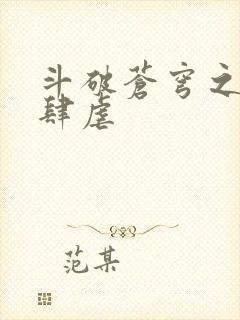 斗破苍穹之
肆虐
范某